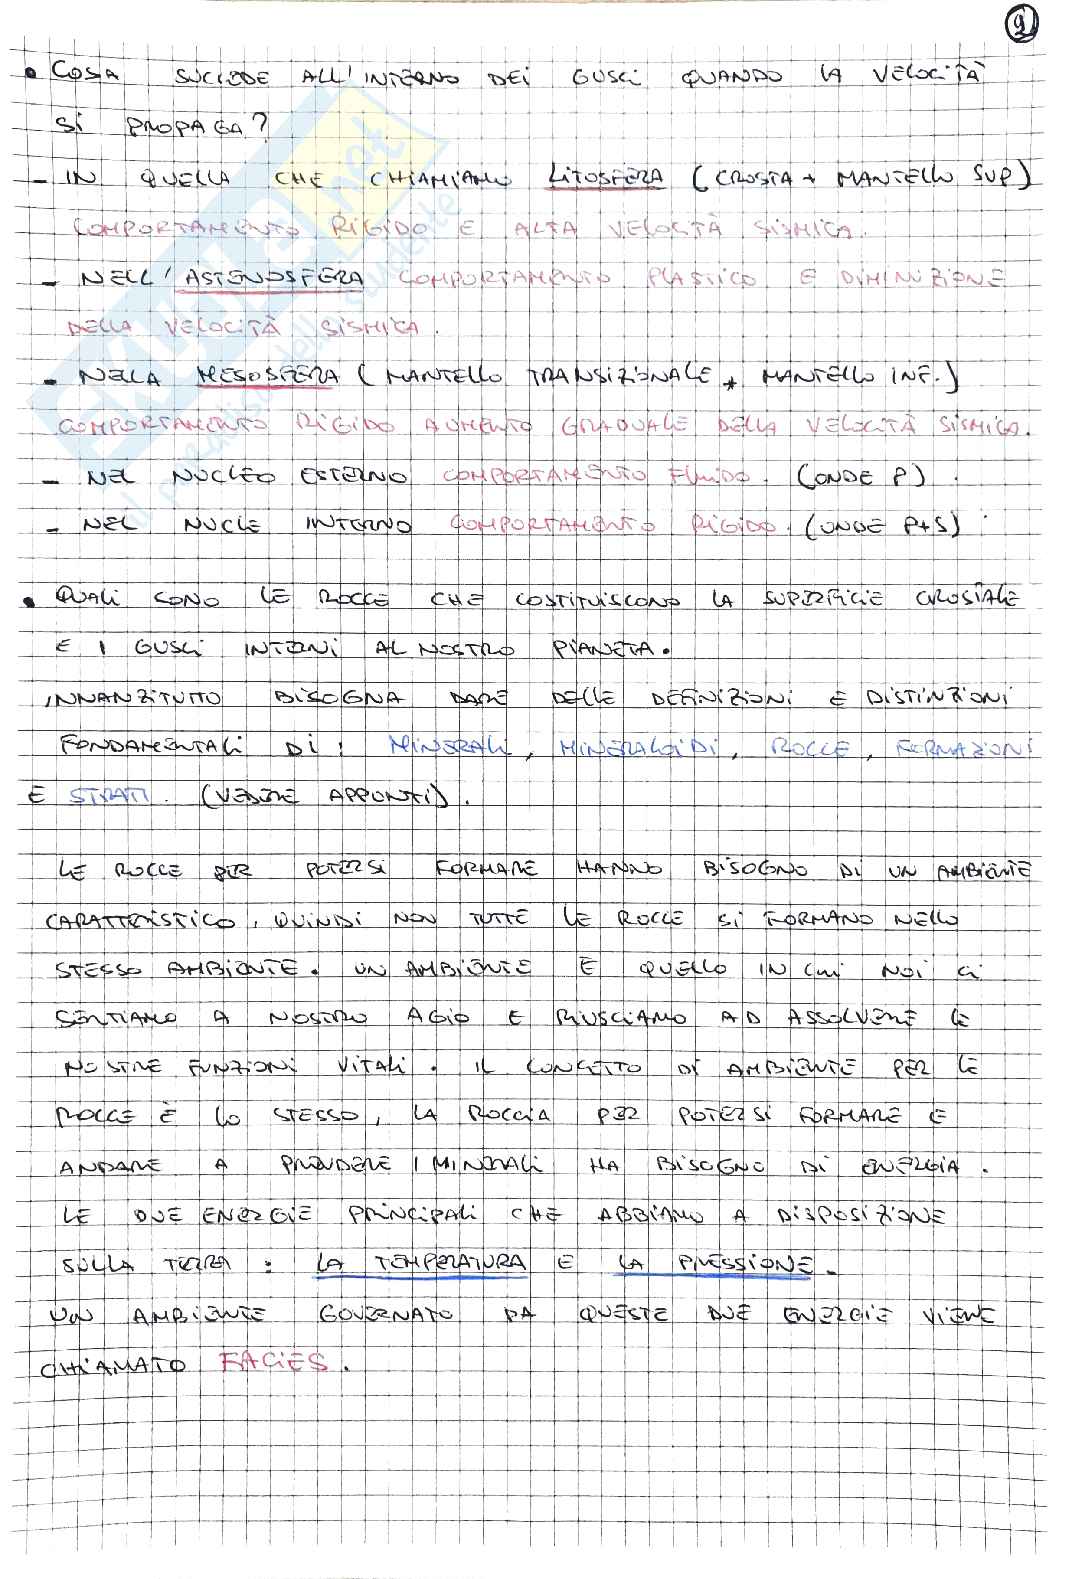 9
• COSA SUCCEDE ALL'INTERNO DEI GUSCI QUANDO LA VELOCITÀ
SI PROPAGA?
- IN QUELLA CHE CHIAMIAMO LITOSFERA (CROSTA + MANTELLO SUP)
COMPORTAMENTO RIGIDO E ALTA VELOCITÀ SISMICA.
- NELL'ASTENOSFERA COMPORTAMENTO PLASTICO E DIMINUZIONE
DELLA VELOCITÀ SISMICA.
- NELLA MESOSFERA (MANTELLO TRANSIZIONALE + MANTELLO INF.)
COMPORTAMENTO RIGIDO AUMENTO GRADUALE DELLA VELOCITÀ SISMICA.
- NEL NUCLEO ESTERNO COMPORTAMENTO FLUIDO. (ONDE P).
- NEL NUCLE INTERNO COMPORTAMENTO RIGIDO. (ONDE P+S).
• QUALI SONO LE ROCCE CHE COSTITUISCONO LA SUPERFICIE CROSTALE
E I GUSCI INTERNI AL NOSTRO PIANETA.
INNANZITUTTO BISOGNA DARE DELLE DEFINIZIONI E DISTINZIONI
FONDAMENTALI DI: MINERALI, MINERALOIDI, ROCCE, FORMAZIONI
E STRATI. (VEDERE APPUNTI).
LE ROCCE PER POTERSI FORMARE HANNO BISOGNO DI UN AMBIENTE
CARATTERISTICO, QUINDI NON TUTTE LE ROCCE SI FORMANO NELLO
STESSO AMBIENTE. UN AMBIENTE È QUELLO IN CUI NOI CI
SENTIAMO A NOSTRO AGIO E RIUSCIAMO AD ASSOLVERE LE
NOSTRE FUNZIONI VITALI. IL CONCETTO DI AMBIENTE PER LE
ROCCE È LO STESSO, LA ROCCIA PER POTERSI FORMARE E
ANDARE A PRENDERE I MINERALI HA BISOGNO DI ENERGIA.
LE DUE ENERGIE PRINCIPALI CHE ABBIAMO A DISPOSIZIONE
SULLA TERRA: LA TEMPERATURA E LA PRESSIONE.
UN AMBIENTE GOVERNATO DA QUESTE DUE ENERGIE VIENE
CHIAMATO FACIES.
SKUOLA.net
il paradiso dello studente